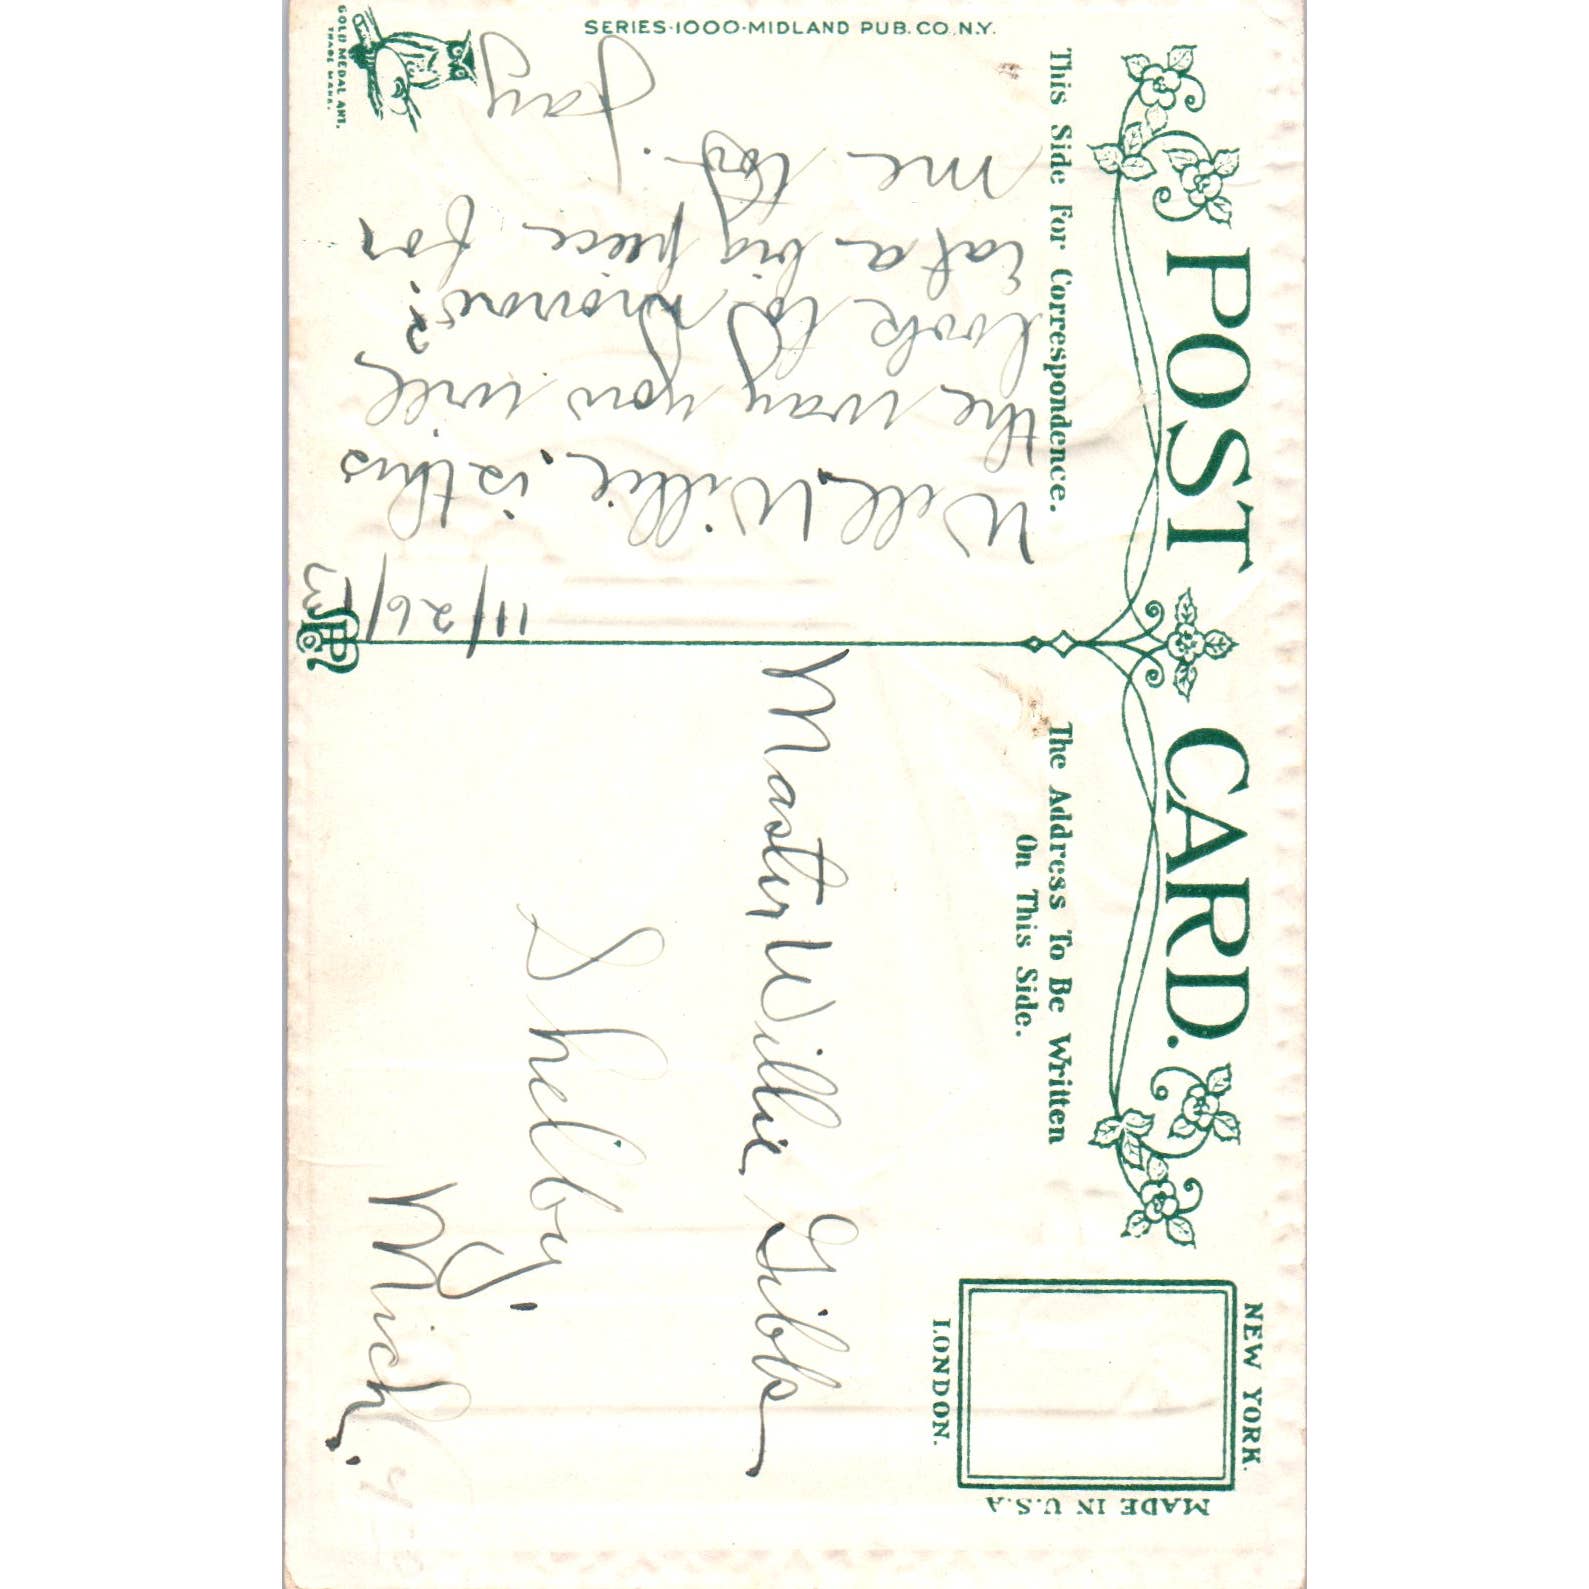 SERIES·1000·MIDLAND PUB. CO. N.Y.
GOLD MEDAL ART.
TRADE MARK.
POST CARD.
NEW YORK.
LONDON.
MADE IN U.S.A
This Side For Correspondence.
The Address To Be Written
On This Side.
11/26/13
Well, Willie, is this
the way you will
look to morrow?
Eat a big piece for
me too.
Jay
Master Willie Gibbs
Shelby,
Mich.